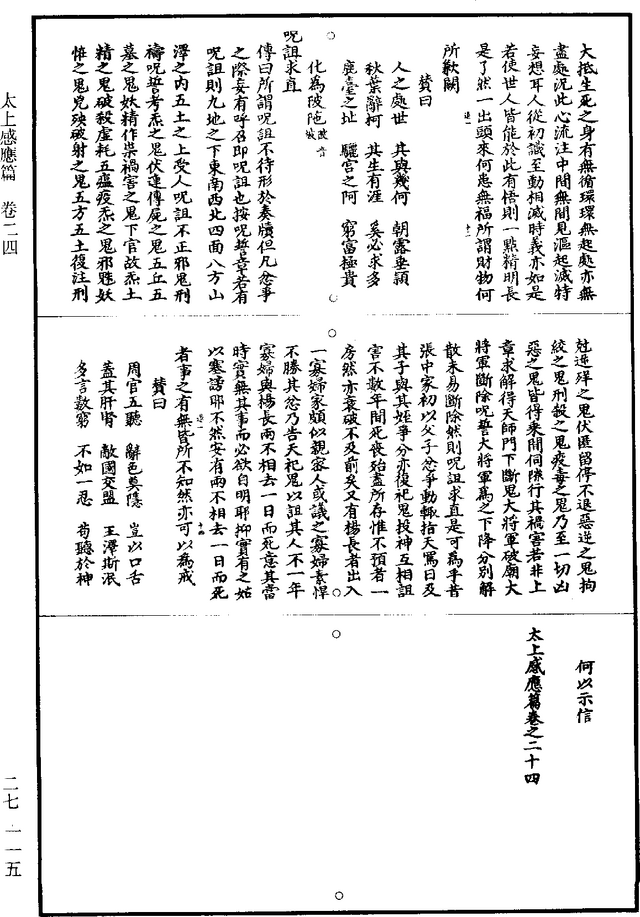 太上感應篇 卷二四
二七 — 一一五
大抵生死之身有無循環環無起處亦無
盡處況此心流注中間無間見漚起滅特
妄想耳人從初識至動相滅時義亦如是
若使世人皆能於此有悟則一點精明長
是了然一出頭來何患無福所謂財物何
所歉闕
贊曰
人之處世 其與幾何 朝露垂穎
秋葉辭柯 其生有涯 奚必求多
鹿臺之址 驪宮之阿 窮富極貴
化為陂陁
呪詛求直
傳曰所謂呪詛不待形於奏牘但凡忿爭
之際妄有呼召即呪詛也按呪誓章若有
呪詛則九地之下東南西北四面八方山
澤之內五土之上受人呪詛不正邪鬼刑
禱呪誓考炁之鬼伏連傳屍之鬼五丘五
墓之鬼妖精作祟禍害之鬼下官故炁土
精之鬼破殺虛耗五瘟疫炁之鬼邪魅妖
惟之鬼兇殃破射之鬼五方五土復注刑
尅逆殃之鬼伏匿留停不退惡逆之鬼拘
絞之鬼刑殺之鬼疫毒之鬼乃至一切凶
惡之鬼皆得來間伺隙行其禍害若非上
章求解得天師門下斷鬼大將軍破廟大
將軍斷除呪誓大將軍為之下降分別解
散未易斷除然則呪詛求直是可為乎昔
張中家初以父子忿爭動輒指天罵日及
其子與其姪爭分亦復祀鬼投神互相詛
害不數年間死喪殆盡所存惟不預者一
房然亦衰破不及前矣又有楊長者出入
一寡婦家頗似親家人或議之寡婦素悍
不勝其忿乃告天祀鬼以詛其人不一年
寡婦與楊長兩不相去一日而死意其當
時實無其事而必欲自明耶抑實有之姑
以塞謗耶不然安有兩不相去一日而死
者事之有無皆所不知然亦可以為戒
贊曰
周官五聽 辭色莫隱 豈以口舌
蓋其肝腎 敵國交盟 王澤斯泯
多言數窮 不如一忍 苟聽於神
何以示信
太上感應篇卷之二十四